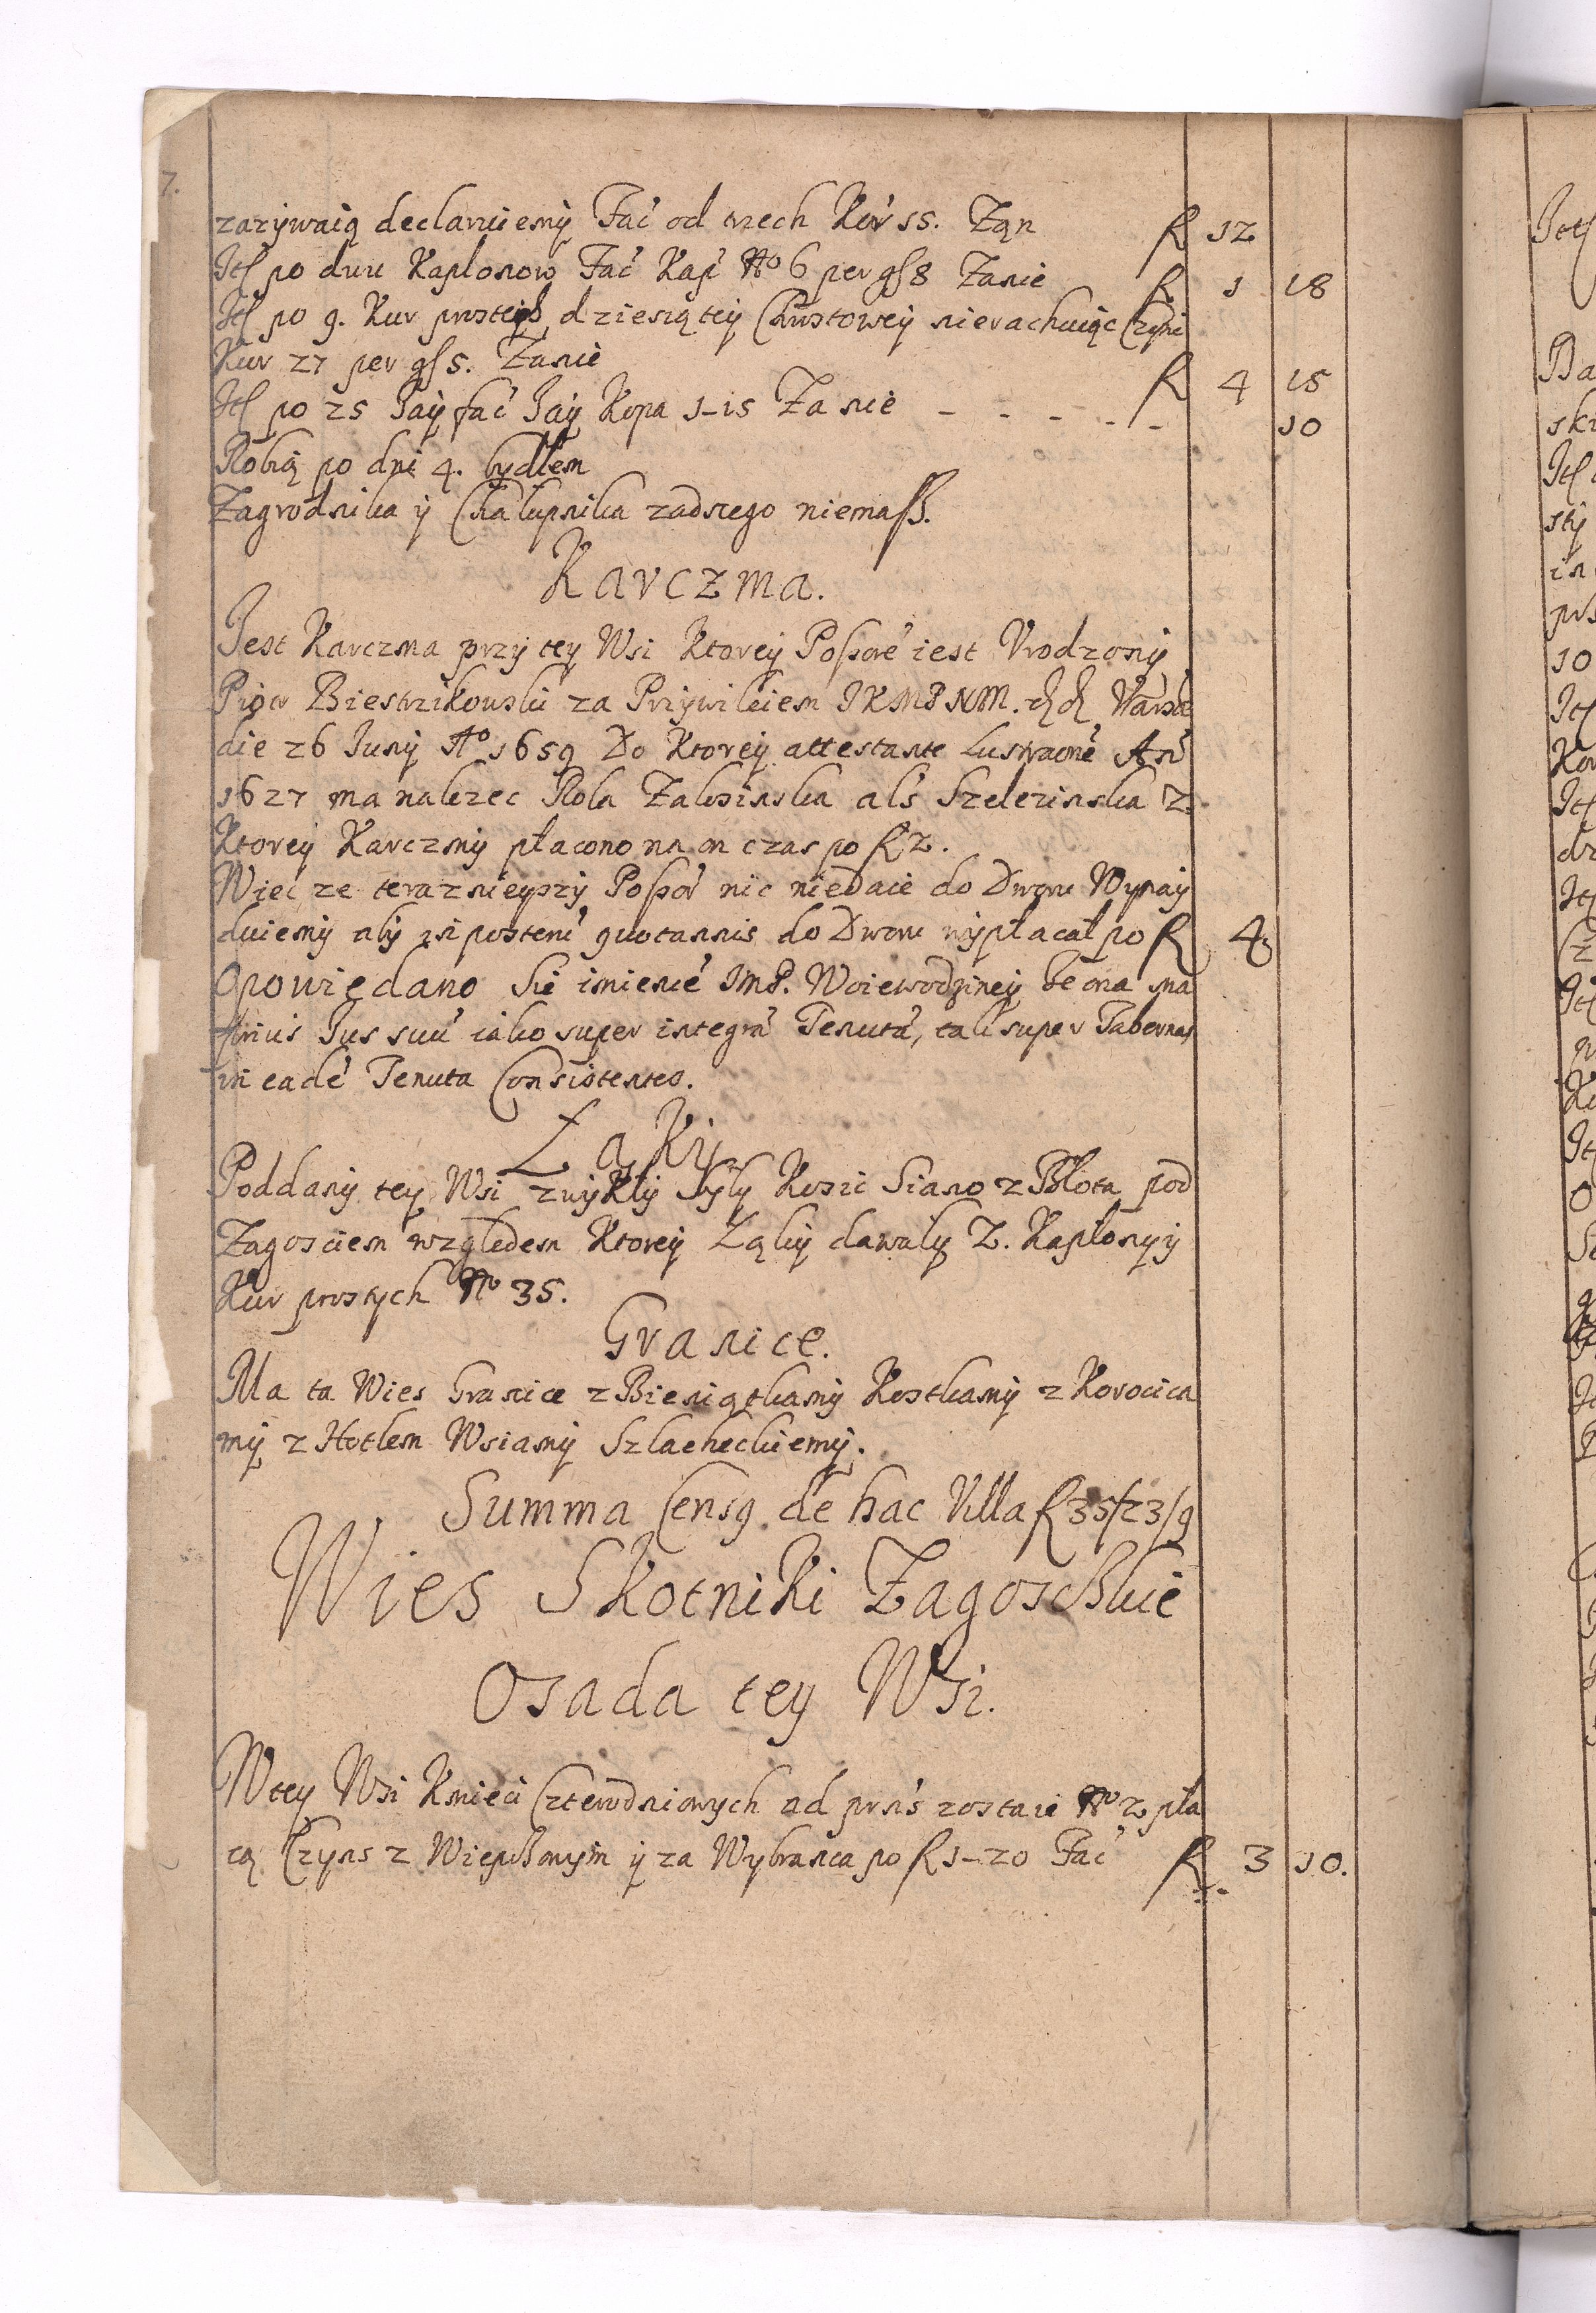 7.
zazÿwaią declaruiemÿ Fac̃ od trzech Kur̃ 15. Zãn R 12
It̃ po dwu Kaplonow Fac̃ Kap̃ No 6 per gſ 8 Zanie R 1 18
It̃ po 9. Kur prostÿch dziesiątey Chrostoweÿ nierachuiąc Czÿni
Kur 27 per gſ 5. Zanie R 4 15
It̃ po 25 Jaÿ fac̃ Jaÿ Kopa 1-15 Za nie - - - - - 10
Robią po dni 4. bydłem
Zagrodnika ÿ Chałupnika zadnego niemaſz.
Karczma.
Jest Karczma przÿ teÿ Wsi Ktoreÿ Poſsore iest Vrodzonÿ
Piotr Biestrzikowski za Prziwileiem JKMPNM. Warsae
die 26 Junÿ Ao 1659 Do Ktoreÿ attestante Lustraone An̄
1627 ma nalezec Rola Zalesinska als Szelezinska Z
Ktoreÿ Karczmÿ płacono na on czas po R 2.
Wiec ze teraznieÿszÿ Poſsor nic niedaie do Dworu Wynaÿ
duiemÿ abÿ in posterū quotannis do Dworu wÿpłacał po R 4
Opowiedano Sie imieniē JmP. Woiewodzineÿ ze ona ma
prius Jus suū iako super integrā Tenutā, tak super Tabernas
in eadē Tenuta Consistentes.
Łąki
Poddanÿ teÿ Wsi zwÿklÿ bÿlÿ Kosic Siano z Błota pod
Zagosciem względem Ktoreÿ Łąkÿ dawalÿ 2. Kapłonÿ ÿ
Kur prostych No 35.
Granice.
Ma ta Wies Granice z Bieniątkamÿ Kostkamÿ z Korocica
mÿ z Hotlem Wsiamÿ Szlacheckiemÿ.
Summa Censq. de hac Villa R 35/23/9
Wies Skotniki Zagoschie
Osada teÿ Wsi.
W teÿ Wsi Kmieci Czterodniowych ad prn̄s zostaie No 2 pła
cą Czÿns z Wieprzowÿm ÿ za Wybranca po R 1-20 Fac̃ R 3 10.